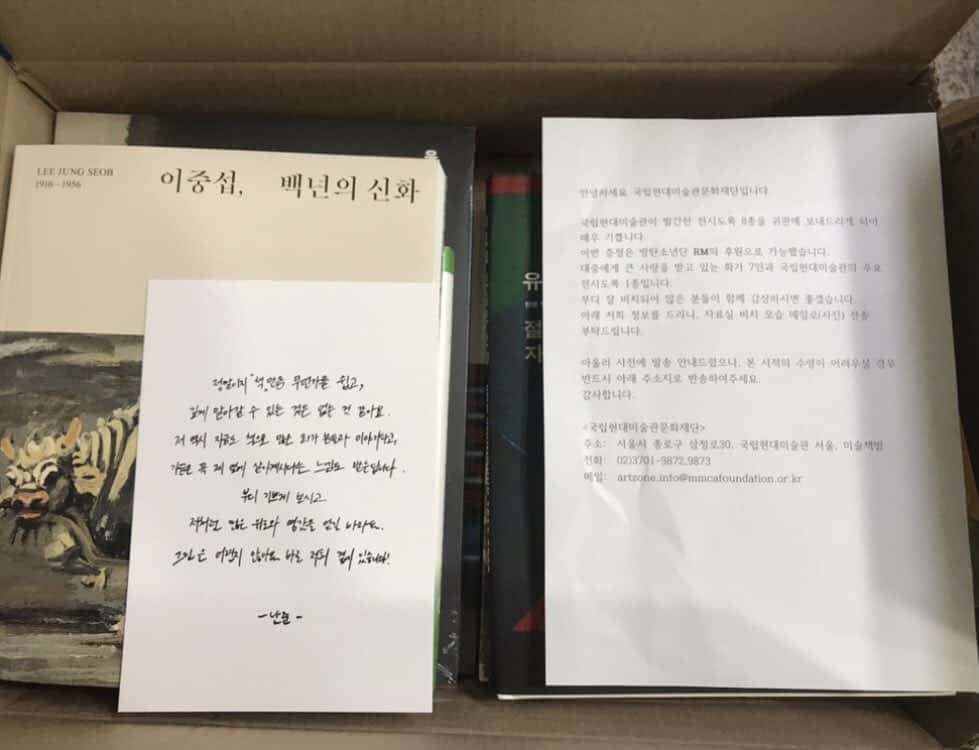 LEE JUNG SEOB
1916 - 1956
이중섭, 백년의 신화
유
유
절
자
정말이지 책 만큼 무언가를 쉽고,
깊게 알아갈 수 있는 것은 없는 것 같아요.
저 역시 지금도 책으로 많은 화가 분들과 이야기하고,
가끔은 꼭 제 옆에 살아계시다는 느낌도 받는답니다.
부디 기쁘게 보시고
저처럼 많은 위로와 영감을 얻길 바라요.
그림은 어렵지 않아요. 바로 저희 곁에 있습니다!
- 난준 -
안녕하세요 국립현대미술관문화재단입니다
국립현대미술관이 발간한 전시도록 8종을 귀관에 보내드리게 되어
매우 기쁩니다.
이번 증정은 방탄소년단 RM의 후원으로 가능했습니다.
대중에게 큰 사랑을 받고 있는 화가 7인과 국립현대미술관의 주요
전시도록 1종입니다.
부디 잘 비치되어 많은 분들이 함께 감상하시면 좋겠습니다.
아래 저희 정보를 드리니, 자료실 비치 모습 메일로(사진) 전송
부탁드립니다.
아울러 사전에 발송 안내드렸으나, 본 서적의 수령이 어려우실 경우
반드시 아래 주소지로 반송하여주세요.
감사합니다.
<국립현대미술관문화재단>
주소: 서울시 종로구 삼청로30, 국립현대미술관 서울, 미술책방
전화: 02)3701-9872,9873
메일: artzone.info@mmcafoundation.or.kr